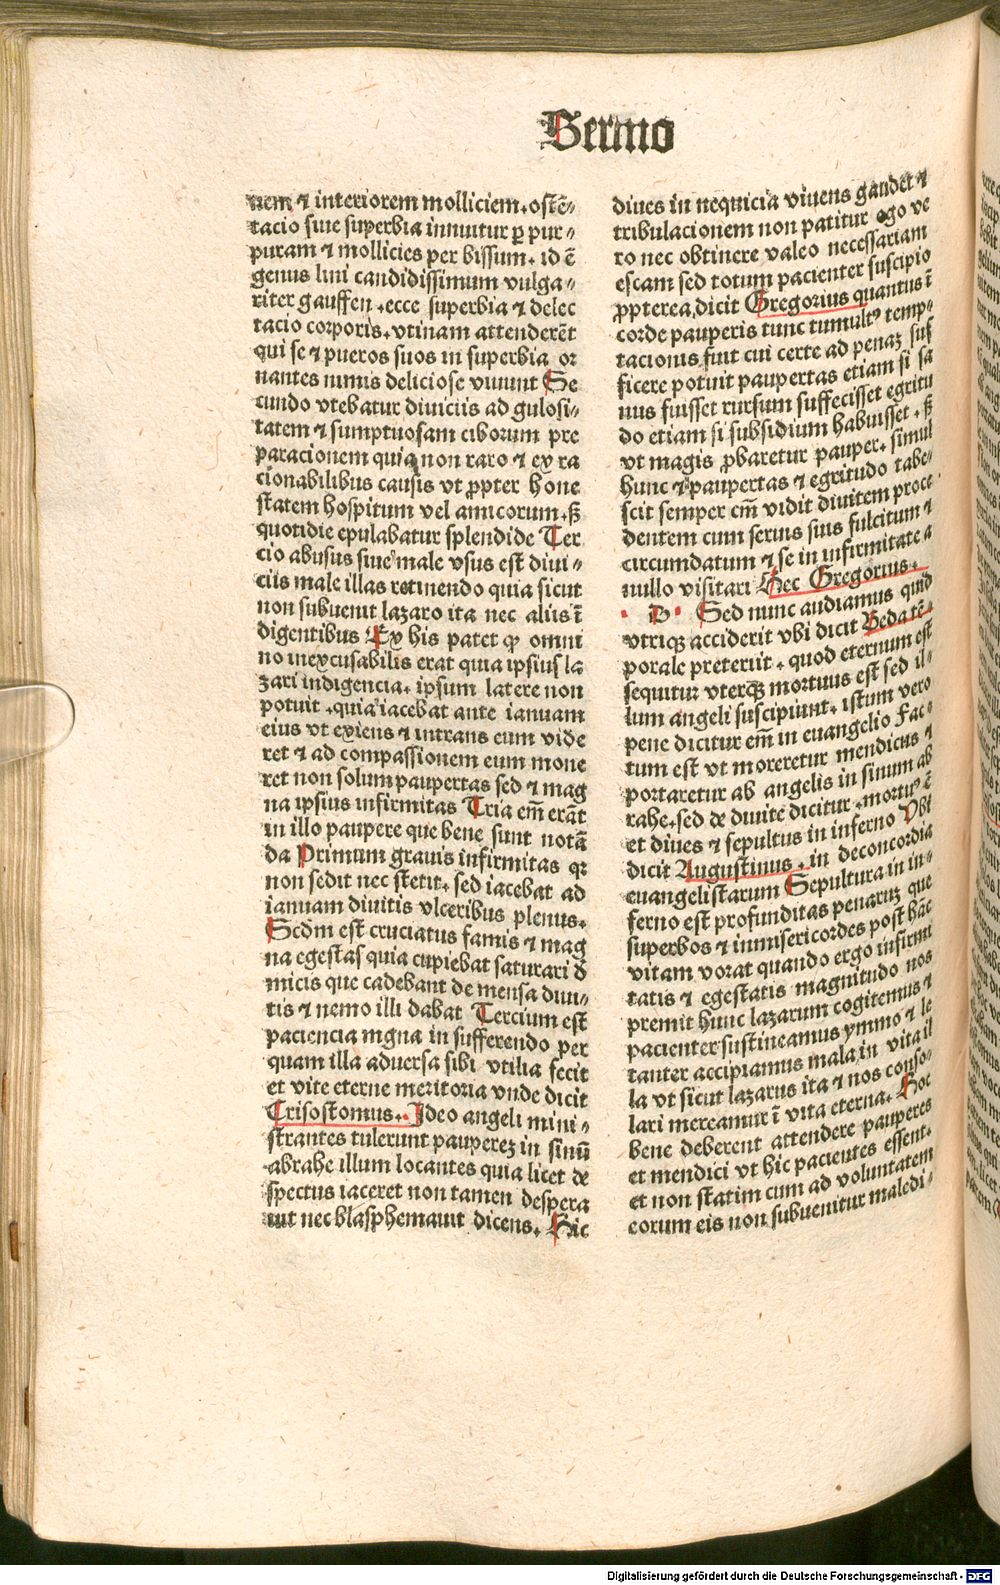 Sermo
nem ⁊ interiorem molliciem. ostē⸗
tacio siue superbia innuitur ꝑ pur⸗
puram ⁊ mollicies per bissum. id ē
genus lini candidissimum vulga⸗
riter gauffen. ecce superbia ⁊ delec
tacio corporis. vtinam attenderēt
qui se ⁊ pueros suos in superbia or
nantes nimis deliciose viuunt Se
cundo vtebatur diuiciis ad gulosi⸗
tatem ⁊ sumptuosam ciborum pre
paracionem quia non raro ⁊ ex ra
cionabilibus causis vt ꝓpter hone
statem hospitum vel amicorum. sꝫ
quotidie epulabatur splendide Ter
cio abusus siue male vsus est diui⸗
ciis male illas retinendo quia sicut
non subuenit lazaro ita nec aliis ī
digentibus Ex his patet ꝙ omni
no inexcusabilis erat quia ipsius la
zari indigencia. ipsum latere non
potuit. quia iacebat ante ianuam
eius vt exiens ⁊ intrans eum vide
ret ⁊ ad compassionem eum mone
ret non solum paupertas sed ⁊ mag
na ipsius infirmitas Tria em̄ erāt
in illo paupere que bene sunt notā
da Primum grauis infirmitas qꝛ
non sedit nec stetit. sed iacebat ad
ianuam diuitis vlceribus plenus.
Scdm est cruciatus famis ⁊ mag
na egestas quia cupiebat saturari d̄
micis que cadebant de mensa diui⸗
tis ⁊ nemo illi dabat Tercium est
paciencia mgna in sufferendo per
quam illa aduersa sibi vtilia fecit
et vite eterne meritoria vnde dicit
Crisostomus. Ideo angeli mini⸗
strantes tulerunt paupereꝫ in sinū
abrahe illum locantes quia licet de
spectus iaceret non tamen despera
uit nec blasphemauit dicens. Hic
diues in nequicia viuens gaudet ⁊
tribulacionem non patitur ego ve
ro nec obtinere valeo necessariam
escam sed totum pacienter suscipio
ꝓpterea, dicit Gregorius quantus ī
corde pauperis tunc tumultꝰ temp⸗
tacionis fuit cui certe ad penaꝫ suf
ficere potuit paupertas etiam si sa
nus fuisset rursum suffecisset egritu
do etiam si subsidium habuisset. sꝫ
vt magis ꝓbaretur pauper. simul
hunc ⁊ paupertas ⁊ egritudo tabe⸗
scit semper cm̄ vidit diuitem proce
dentem cum seruis suis fulcitum ⁊
circumdatum ⁊ se in infirmitate a
nullo visitari Hec Gregorius.
B Sed nunc audiamus quid
vtriqꝫ acciderit vbi dicit Beda tē⸗
porale preteriit. quod eternum est
sequitur vterqꝫ mortuus est sed il⸗
lum angeli suscipiunt. istum vero
pene dicitur em̄ in euangelio Fac⸗
tum est vt moreretur mendicus ⁊
portaretur ab angelis in sinum ab
rahe. sed de diuite dicitur. mortuꝰ ē
et diues ⁊ sepultus in inferno Vbi
dicit Augustinus. in deconcordia
euangelistarum Sepultura in in⸗
ferno est profunditas penaruꝫ que
superbos ⁊ inmisericordes post hāc
vitam vorat quando ergo infirmi
tatis ⁊ egestatis magnitudo nos
premit hunc lazarum cogitemus ⁊
pacienter sustineamus ymmo ⁊ le
tanter accipiamus mala, in vita il
la vt sicut lazarus ita ⁊ nos conso⸗
lari mereamur ī vita eterna. Hoc
bene deberent attendere pauperes
et mendici vt hic pacientes essent.
et non statim cum ad voluntatem
eorum eis non subuenitur maledi⸗
Digitalisierung gefördert durch die Deutsche Forschungsgemeinschaft - DFG